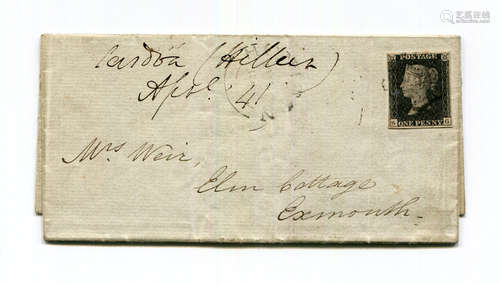 London (Hillier)
Apl. 41
POSTAGE
ONE PENNY
Mrs Weir,
Elm Cottage
Exmouth.
易拍全球